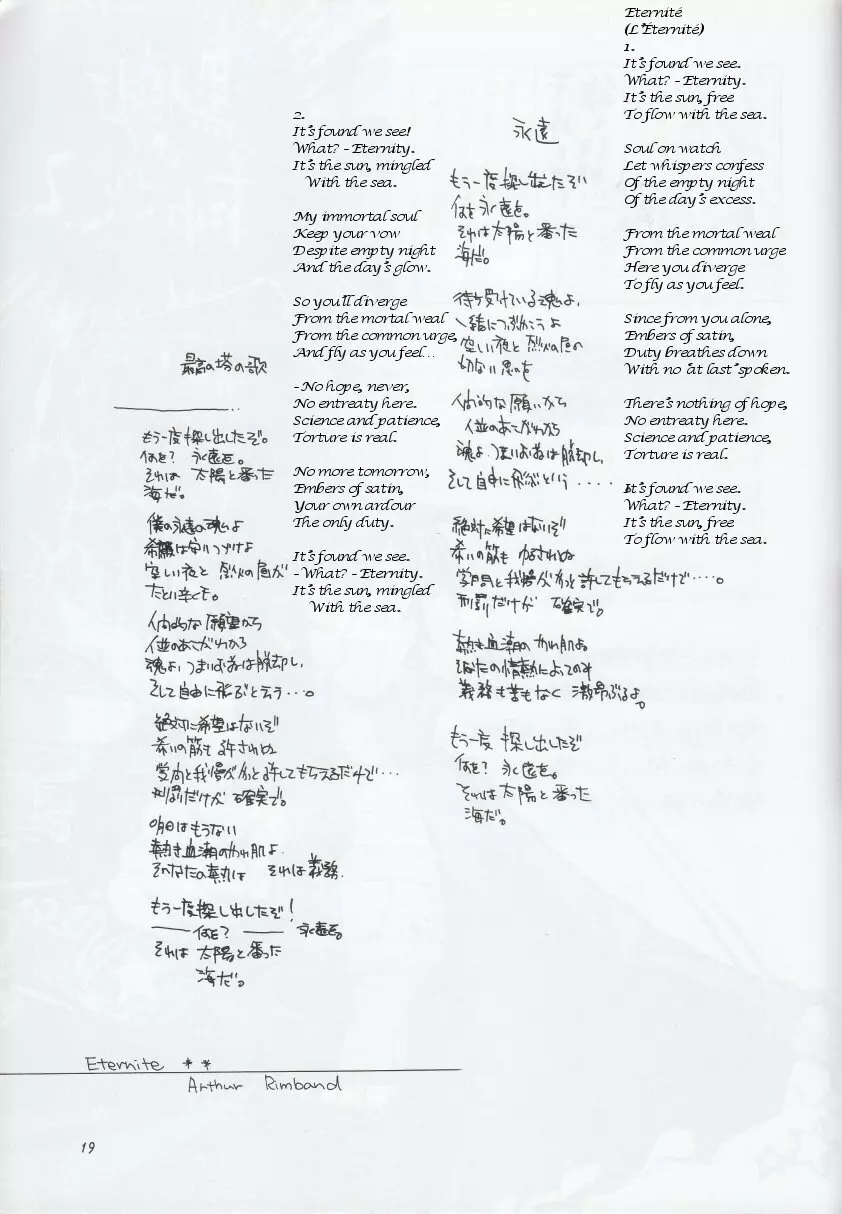 Eternité
(L'Éternité)
1.
It's found we see.
What? - Eternity.
It's the sun, free
To flow with the sea.
Soul on watch
Let whispers confess
Of the empty night
Of the day's excess.
From the mortal weal
From the common urge
Here you diverge
To fly as you feel.
Since from you alone,
Embers of satin,
Duty breathes down
With no 'at last' spoken.
There's nothing of hope,
No entreaty here.
Science and patience,
Torture is real.
It's found we see.
What? - Eternity.
It's the sun, free
To flow with the sea.
永遠
もう一度探し出したぞ
何を永遠を。
それは太陽と番った
海だ。
待ち受けている魂よ、
一緒につぶやこうよ
空しい夜と烈火の昼の
切ない思いを
人間的な願いから
人並のあこがれから
魂よ、つまりお前は脱却し、
そして自由に飛ぶという・・・・
絶対に希望はないぞ
希いの筋も
学問と我慢がやっと許してもらえるだけで・・・・。
刑罰だけが 確実で。
熱き血潮の やわ肌よ
そなたの情熱によってのみ
義務も苦もなく 激昂ぶるよ。
もう一度 探し出したぞ
何を? 永遠を。
それは太陽と番った
海だ。
2.
It's found we see!
What? - Eternity.
It's the sun, mingled
With the sea.
My immortal soul
Keep your vow
Despite empty night
And the day's glow.
So you'll diverge
From the mortal weal
From the common urge,
And fly as you feel...
- No hope, never,
No entreaty here.
Science and patience,
Torture is real.
No more tomorrow,
Embers of satin,
Your own ardour
The only duty.
It's found we see.
- What? - Eternity.
It's the sun, mingled
With the sea.
最高の塔の歌
もう一度探し出したぞ。
何を? 永遠を。
それは 太陽と番った
海だ。
僕の永遠の魂よ
希願は守りつづけよ
空しい夜と 烈火の昼が
たとい辛くとも。
人間的な願望から
人並のあこがれから
魂よ、つまりお前は脱却し、
そして自由に飛ぶと云う・・・。
絶対に希望はないぞ
希いの筋も許されぬ
学問と我慢がやっと許してもらえるだけで・・・
刑罰だけが 確実で。
明日はもうない
熱き血潮のやわ肌よ
そなたの熱は それは義務。
もう一度探し出したぞ!
── 何を? ── 永遠を。
それは 太陽と番った
海だ。
Eternite * *
Arthur Rimband
19